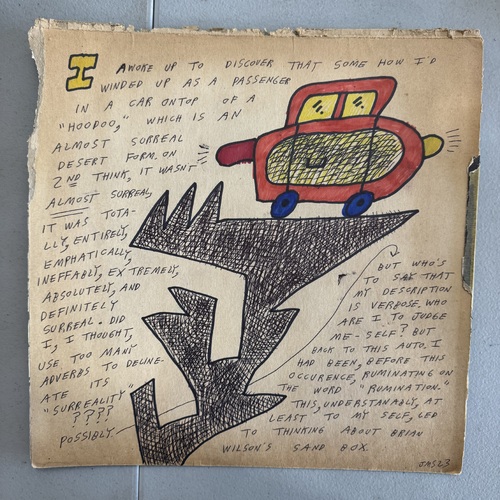 I AWOKE UP TO DISCOVER THAT SOME HOW I'D
WINDED UP AS A PASSENGER
IN A CAR ONTOP OF A
"HOODOO," WHICH IS AN
ALMOST SURREAL
DESERT FORM. ON
2ND THINK, IT WASN'T
ALMOST SURREAL,
IT WAS TOTA-
LLY, ENTIRELY,
EMPHATICALLY,
INEFFABLY, EXTREMELY,
ABSOLUTELY, AND
DEFINITELY
SURREAL. DID
I, I THOUGHT,
USE TOO MANY
ADVERBS TO DELINE-
ATE ITS
"SURREALITY"
????
POSSIBLY
BUT WHO'S
TO SAY THAT
MY DESCRIPTION
IS VERBOSE. WHO
ARE I TO JUDGE
ME-SELF? BUT
BACK TO THIS AUTO. I
HAD BEEN, BEFORE THIS
OCCURENCE, RUMINATING ON
THE WORD "RUMINATION."
THIS, UNDERSTANABLY, AT
LEAST TO MY SELF, LED
TO THINKING ABOUT BRIAN
WILSON'S SAND BOX.
JMS23